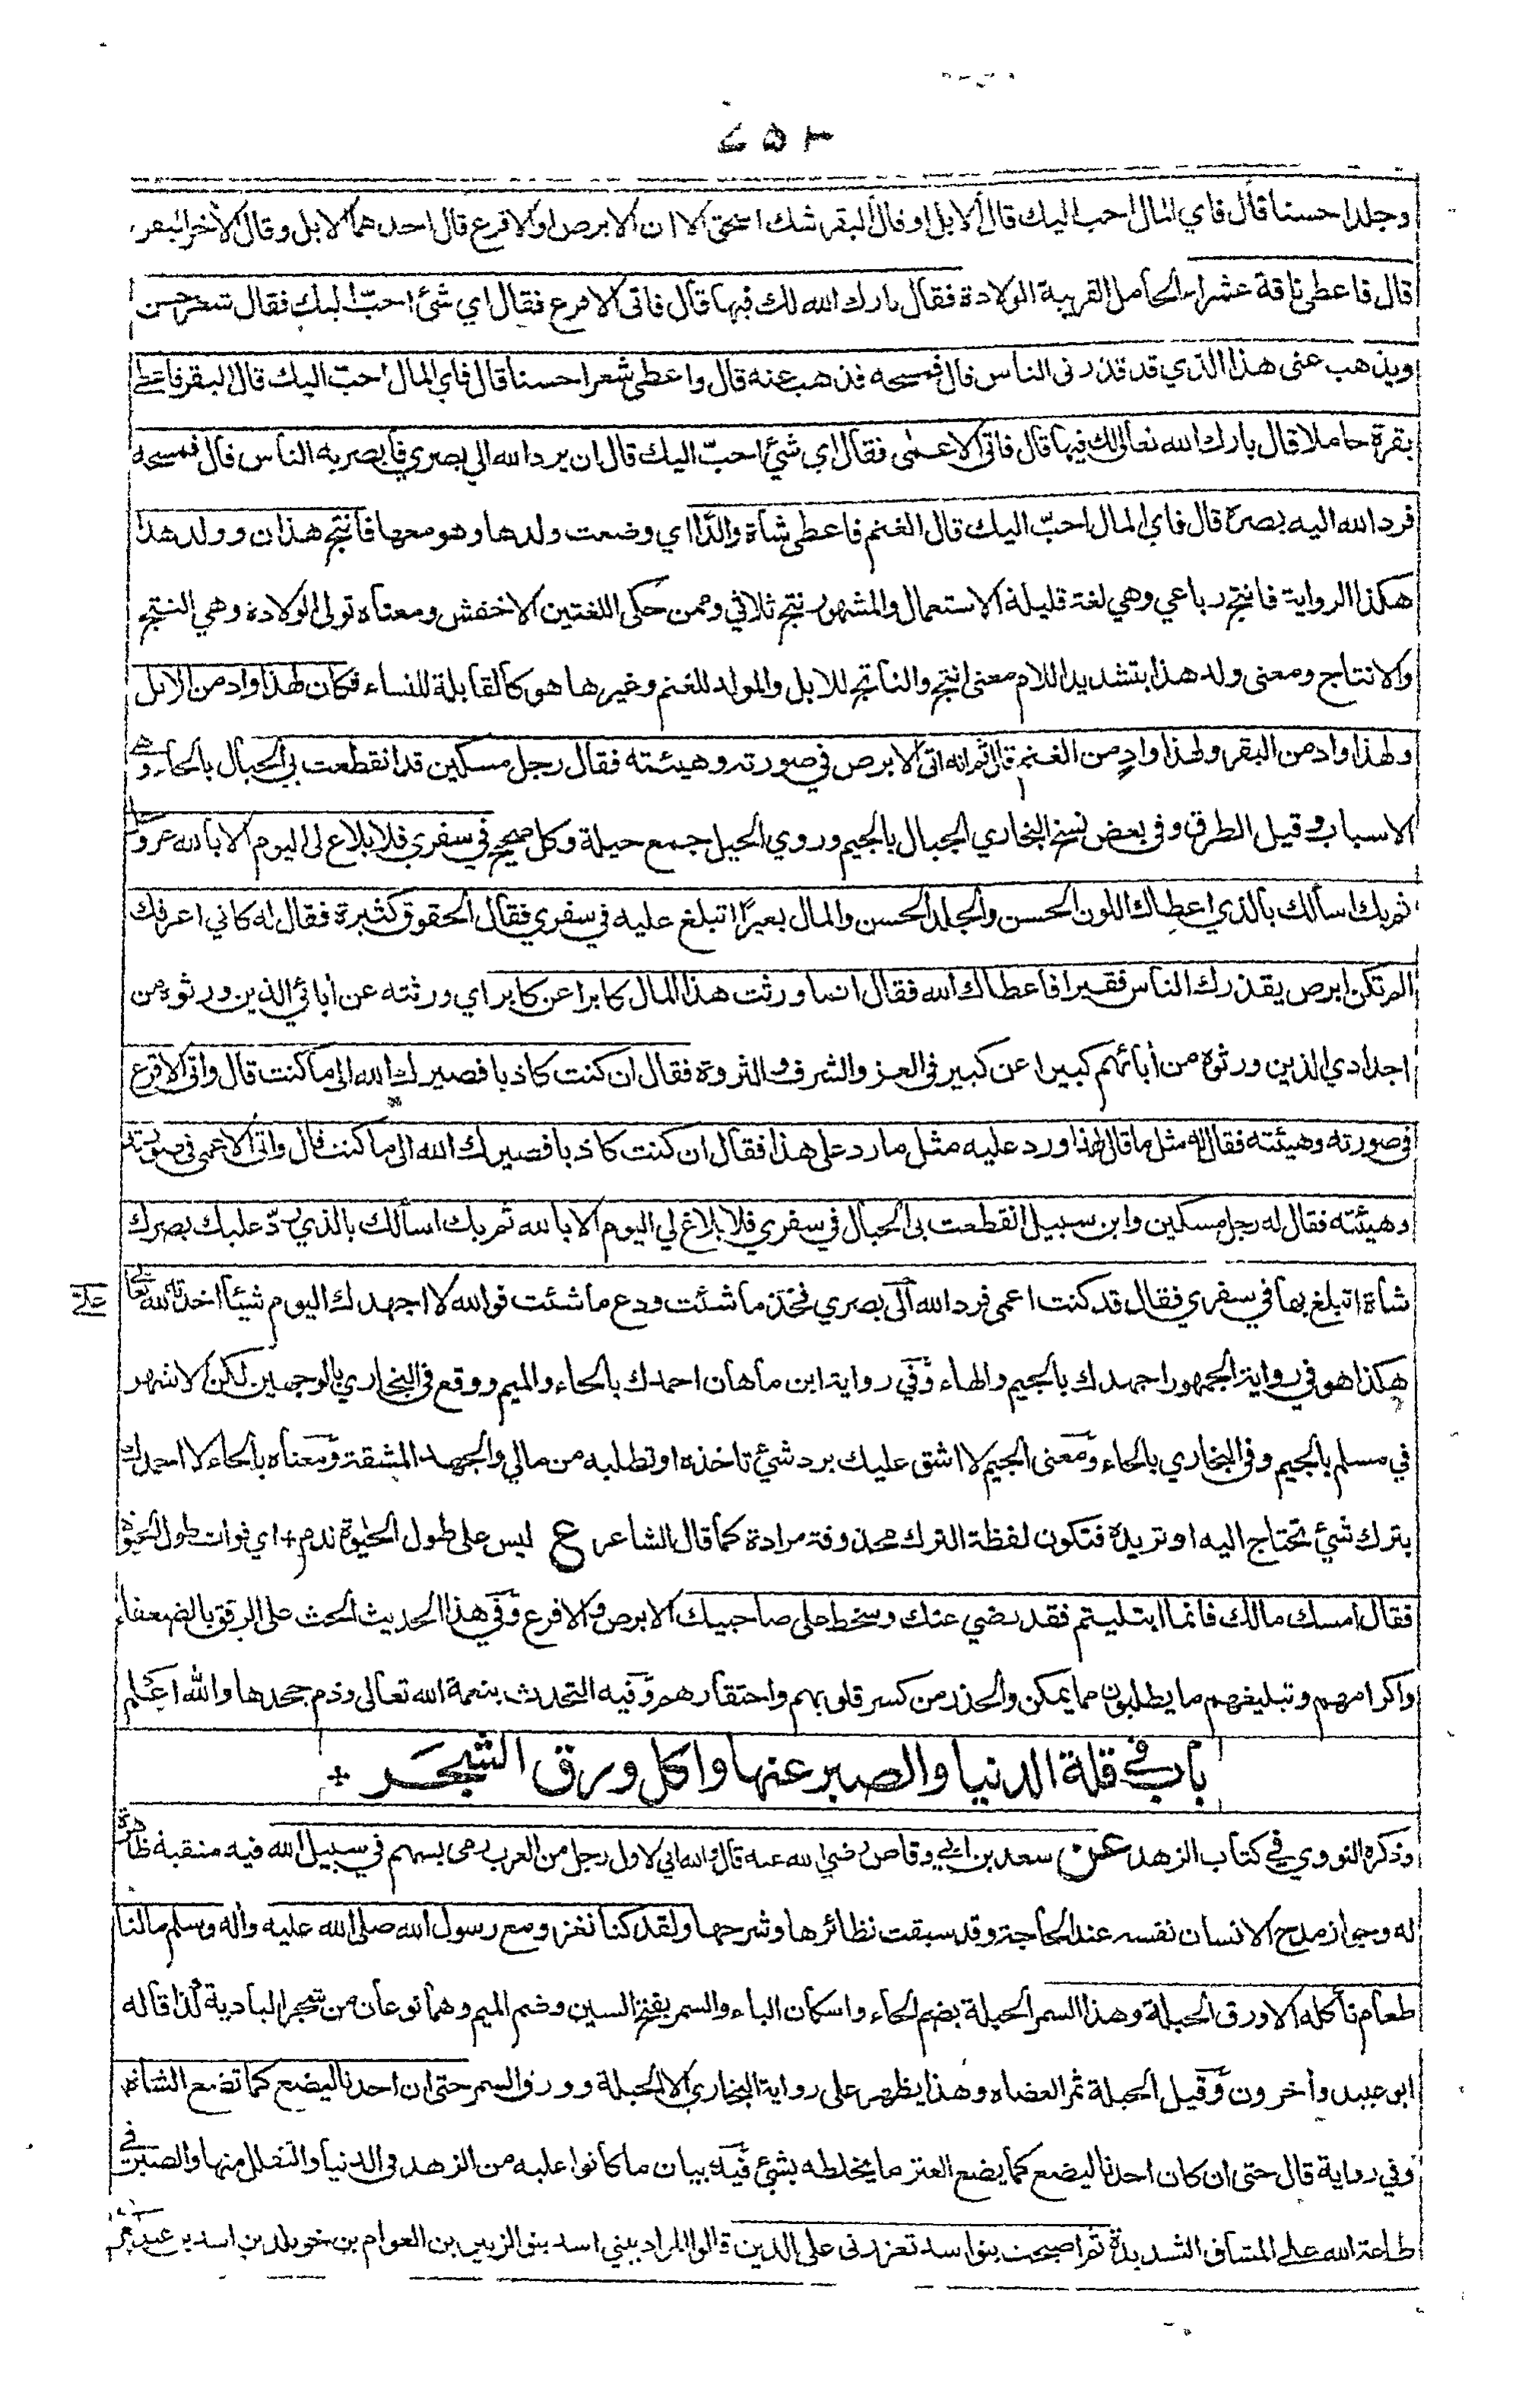 ٧٥٣
وجلدا حسنا قال فاي المال احب اليك قال الابل او قال البقر شك اسحق الا ان الابرص او الاقرع قال احدهما الابل وقال الأخر البقر
قال فاعطى ناقة عشراء الحامل القريبة الولادة فقال بارك الله لك فيها قال فاتى الاقرع فقال اي شئ احبّ اليك فقال شعر حسن
ويذهب عنى هذا الذي قد قذرنى الناس قال فمسحه فذهب عنه قال واعطى شعرا حسنا قال فاي المال احبّ اليك قال البقر فاعطي
بقرة حاملا قال بارك الله تعالى لك فيها قال فاتى الاعمى فقال اي شئ احبّ اليك قال ان يرد الله الي بصري فأبصر به الناس قال فمسحه
فرد الله اليه بصره قال فاي المال احبّ اليك قال الغنم فاعطى شاة والدًا اي وضعت ولدها وهو معها فأنتج هذان وولد هذا
هكذا الرواية فانتج رباعي وهي لغة قليلة الاستعمال والمشهور نتج ثلاثي وممن حكى اللغتين الاخفش ومعناه تولى الولادة وهي النتج
والانتاج ومعنى ولد هذا بتشديد اللام معنى انتج والناتج للابل والمولد للغنم وغيرها هو كالقابلة للنساء فكان لهذا واد من الابل
ولهذا واد من البقر ولهذا وادٍ من الغنم قال ثم انه اتى الابرص في صورته وهيئته فقال رجل مسكين قد انقطعت بي الحبال بالحاء وهي
الاسباب وقيل الطرق وفى بعض نسخ البخاري الجبال بالجيم وروي الحيل جمع حيلة وكل صحيح في سفري فلا بلاغ لى اليوم الا بالله عز وجل
ثم بك اسألك بالذي اعطاك اللون الحسن والجلد الحسن والمال بعيرًا اتبلغ عليه في سفري فقال الحقوق كثيرة فقال له كاني اعرفك
الم تكن ابرص يقذرك الناس فقيرا فاعطاك الله فقال انما ورثت هذا المال كابرا عن كابر اي ورثته عن أبائي الذين ورثوه من
اجدادي الذين ورثوه من أبائهم كبيرا عن كبير فى العز والشرف والثروة فقال ان كنت كاذبا فصيرك الله الى ما كنت قال واتى الاقرع
فى صورته وهيئته فقال له مثل ما قال لهذا ورد عليه مثل ما رد على هذا فقال ان كنت كاذبا فصيرك الله الى ما كنت قال واتى الاعمى فى صورته
وهيئته فقال له رجل مسكين وابن سبيل انقطعت بى الحبال في سفري فلا بلاغ لي اليوم الا بالله ثم بك اسألك بالذي ردّ عليك بصرك
شاة اتبلغ بها في سفري فقال قد كنت اعمى فرد الله الى بصري فخذ ما شئت ودع ما شئت فوالله لا اجهدك اليوم شيئا اخذته لله تعالى
هكذا هو في رواية الجمهور اجهدك بالجيم والهاء وفي رواية ابن ماهان احمدك بالحاء والميم ووقع فى البخاري بالوجهين لكن الاشهر
في مسلم بالجيم وفى البخاري بالحاء ومعنى الجيم لا اشق عليك برد شئ تاخذه او تطلبه من مالي والجهد المشقة ومعناه بالحاء لا احمدك
بترك شئ تحتاج اليه او تريده فتكون لفظة الترك محذوفة مرادة كما قال الشاعر ع ليس على طول الحيوة ندم + اي فوات طول الحيوة
فقال امسك مالك فانما ابتليتم فقد رضي عنك وسخط على صاحبيك الابرص والاقرع وفي هذا الحديث الحث على الرفق بالضعفاء
واكرامهم وتبليغهم ما يطلبون مما يمكن والحذر من كسر قلوبهم واحتقارهم وفيه التحدث بنعمة الله تعالى وذم جحدها والله اعلم
باب في قلة الدنيا والصبر عنها واكل ورق الشجر +
وذكره النووي في كتاب الزهد عن سعد بن ابي وقاص رضي الله عنه قال والله اني لاول رجل من العرب رمى بسهم في سبيل الله فيه منقبة ظاهرة
له وجواز مدح الانسان نفسه عند الحاجة وقد سبقت نظائرها وشرحها ولقد كنا نغزو مع رسول الله صلى الله عليه وأله وسلم ما لنا
طعام نأكله الا ورق الحبلة وهذا السمر الحبلة بضم الحاء واسكان الباء والسمر بفتح السين وضم الميم وهما نوعان من شجر البادية كذا قاله
ابو عبيد وأخرون وقيل الحبلة ثمر العضاه وهذا يظهر على رواية البخاري الا الحبلة وورق السمر حتى ان احدنا ليضع كما تضع الشاة
وفي رواية قال حتى ان كان احدنا ليضع كما يضع العنز ما يخلطه بشئ فيه بيان ما كانوا عليه من الزهد فى الدنيا والتقلل منها والصبر في
طاعة الله على المشاق الشديدة ثم اصبحت بنو اسد تعزرنى على الدين قالوا المراد ببني اسد بنو الزبير بن العوام بن خويلد بن اسد بن عبد